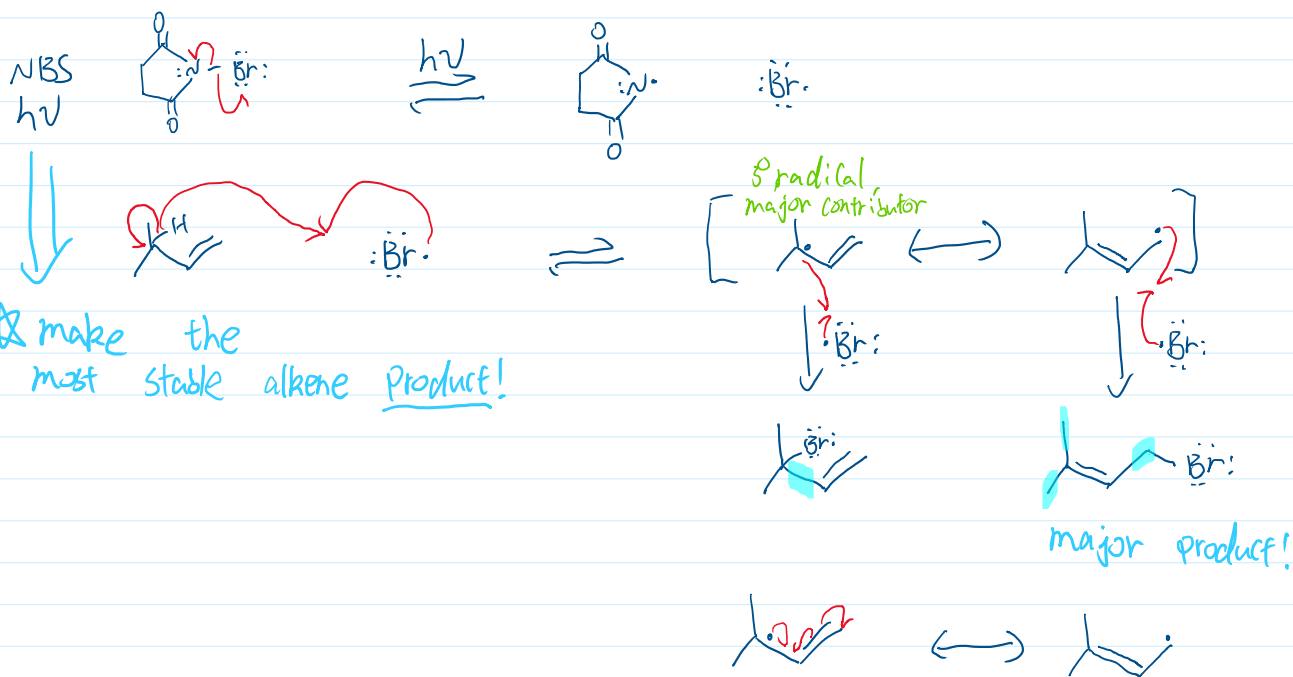 NBS
hν
O
:N-Br:
O
hν
O
:N·
O
:Br·
H
:Br·
3° radical,
major contributor
☆ make the
most stable alkene product!
·Br:
·Br:
Br:
Br:
major product!